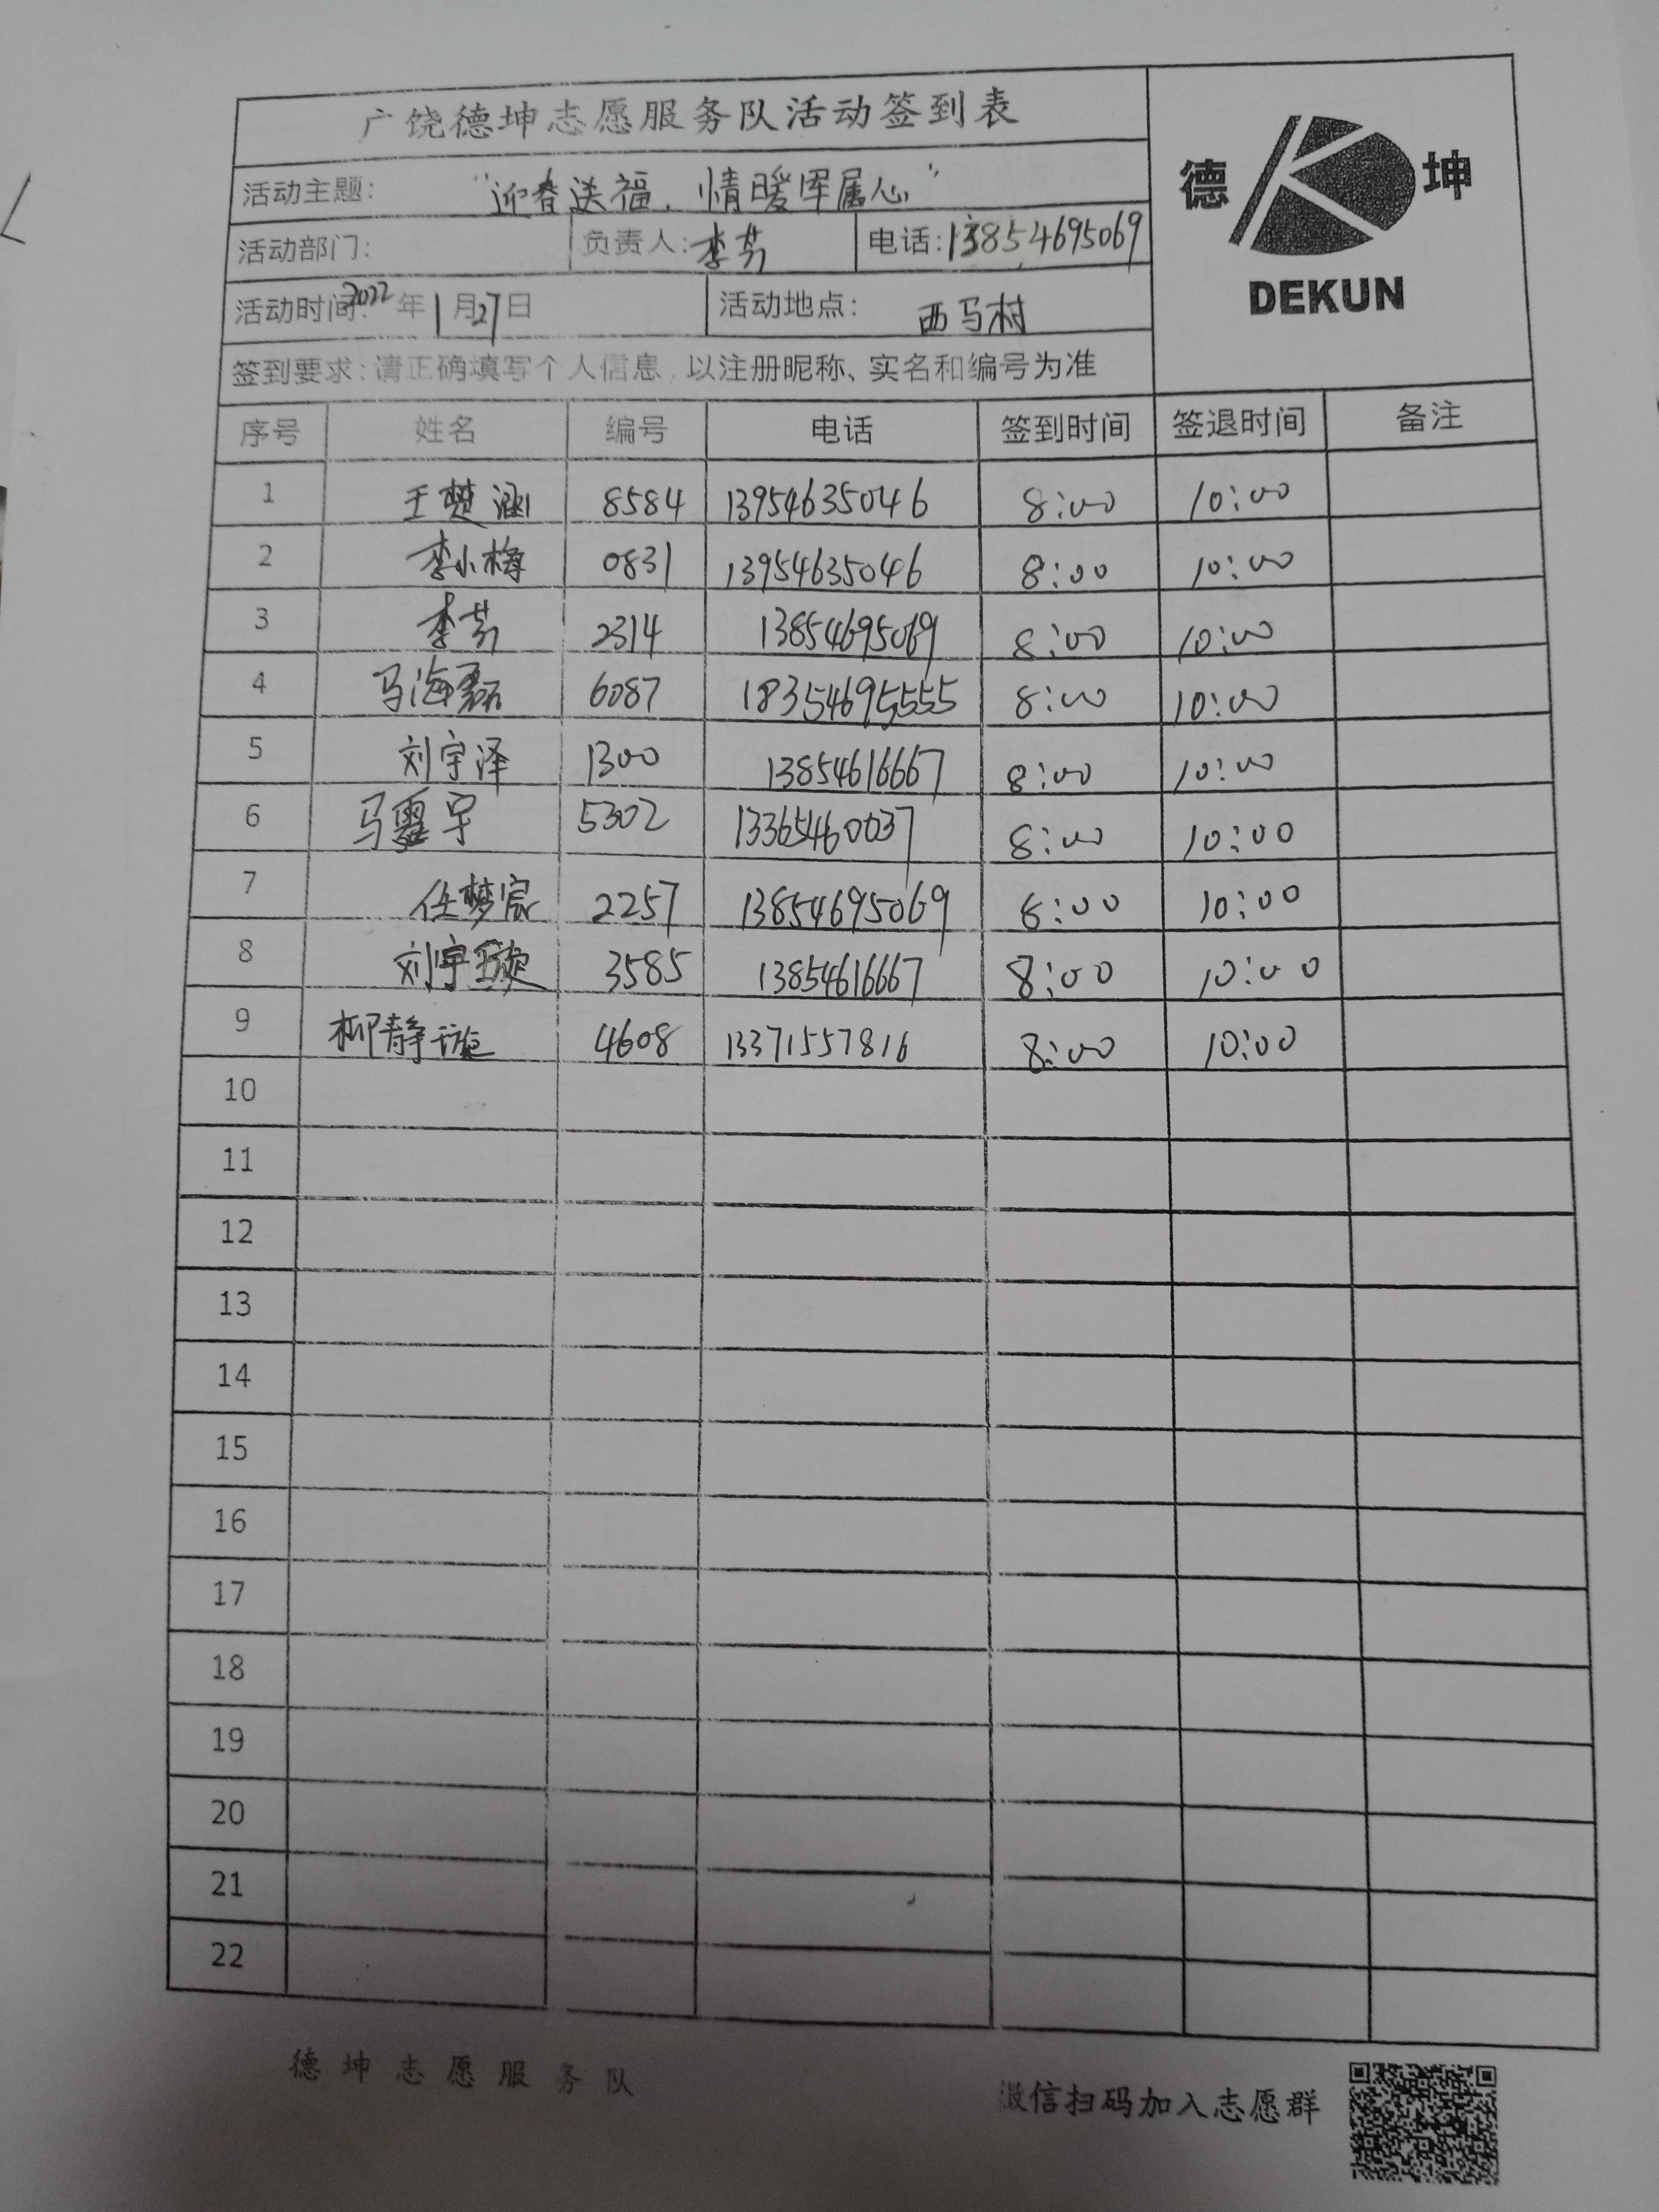 广饶德坤志愿服务队活动签到表
德 坤
DEKUN
活动主题: "迎春送福,情暖军属心"
活动部门: 负责人:李芳 电话:13854695069
活动时间:2022年1月27日 活动地点: 西马村
签到要求:请正确填写个人信息,以注册昵称、实名和编号为准
序号 姓名 编号 电话 签到时间 签退时间 备注
1 王楚涵 8584 13954635046 8:00 10:00
2 李小梅 0831 13954635046 8:00 10:00
3 李芳 2314 13854695069 8:00 10:00
4 马海磊 6087 18354695555 8:00 10:00
5 刘宇泽 1300 13854616667 8:00 10:00
6 马 宇 5302 13365460037 8:00 10:00
7 任梦宸 2257 13854695069 8:00 10:00
8 刘宇璇 3585 13854616667 8:00 10:00
9 柳静 4608 13371557816 8:00 10:00
10
11
12
13
14
15
16
17
18
19
20
21
22
德坤志愿服务队
微信扫码加入志愿群